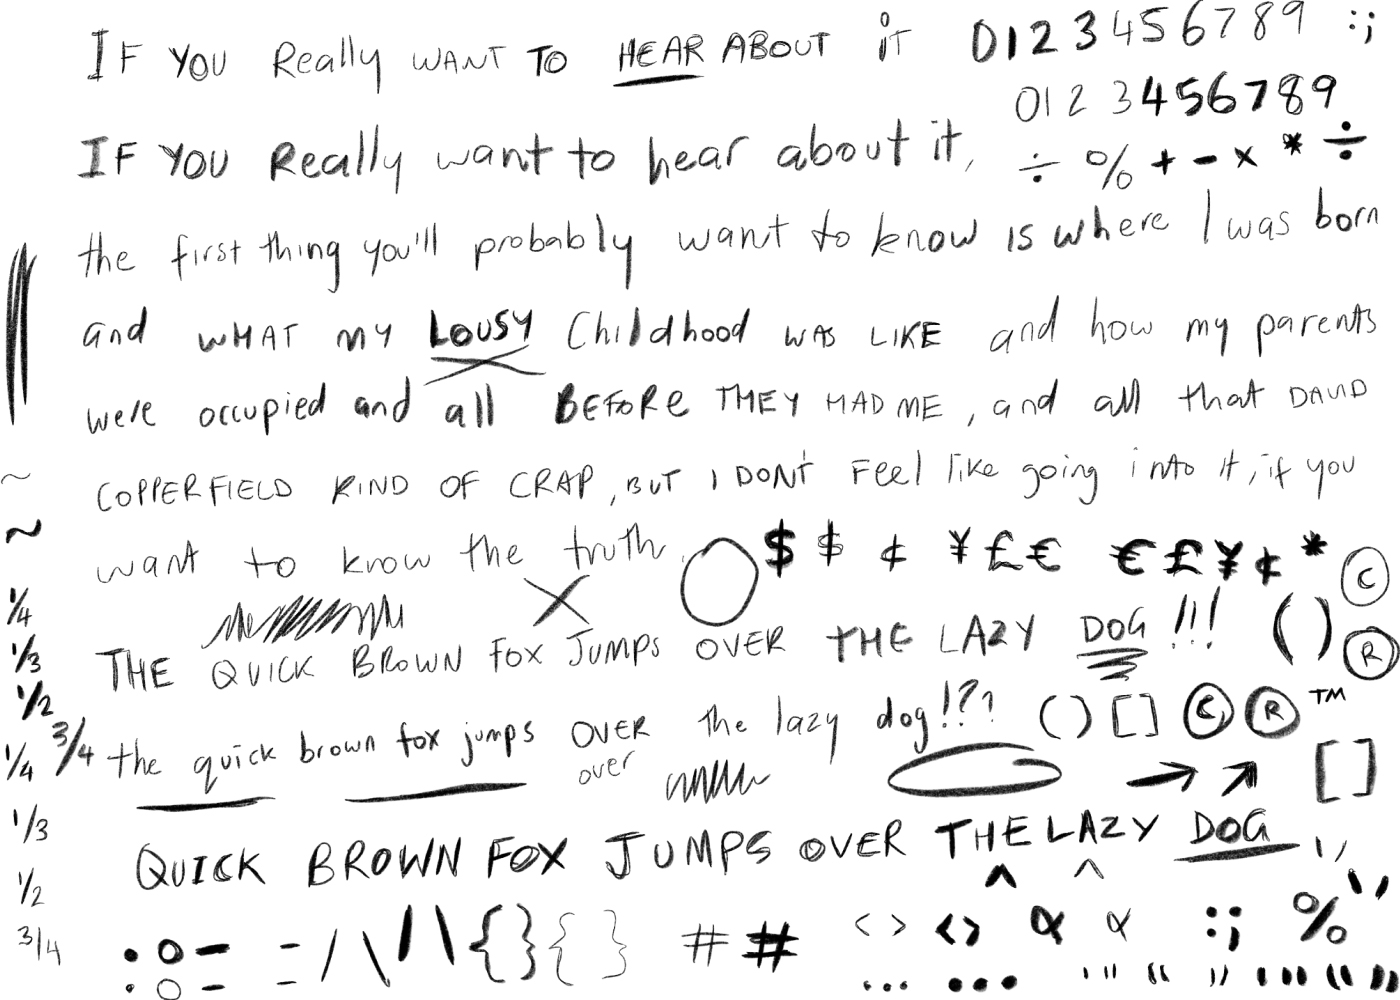 IF YOU Really WANT TO HEAR ABOUT iT 0123456789 :;
0123456789
IF YOU Really want to hear about it,
÷ % + - × * ÷
the first thing you'll probably want to know is where I was born
and WHAT MY LOUSY Childhood WAS LIKE and how my parents
were occupied and all BEFORe THEY HAD ME, and all that DAVID
~
COPPERFIELD KIND OF CRAP, BUT I DON'T Feel like going into it, if you
~
want to know the truth.
$ $ ¢ ¥ £ € € £ ¥ ¢ * ©
1/4
THE QUICK BROWN FOX JUMPS OVER THE LAZY DOG !!! ( ) ®
1/3
1/2
the quick brown fox jumps OVER the lazy dog!?? ( ) [ ] © ® ™
over
3/4
1/4
→ ↗ [ ]
1/3
QUICK BROWN FOX JUMPS OVER THE LAZY DOG
^ ^
1/2
3/4
: = / \ / \ { } { } # # < > < > :; %
... ...